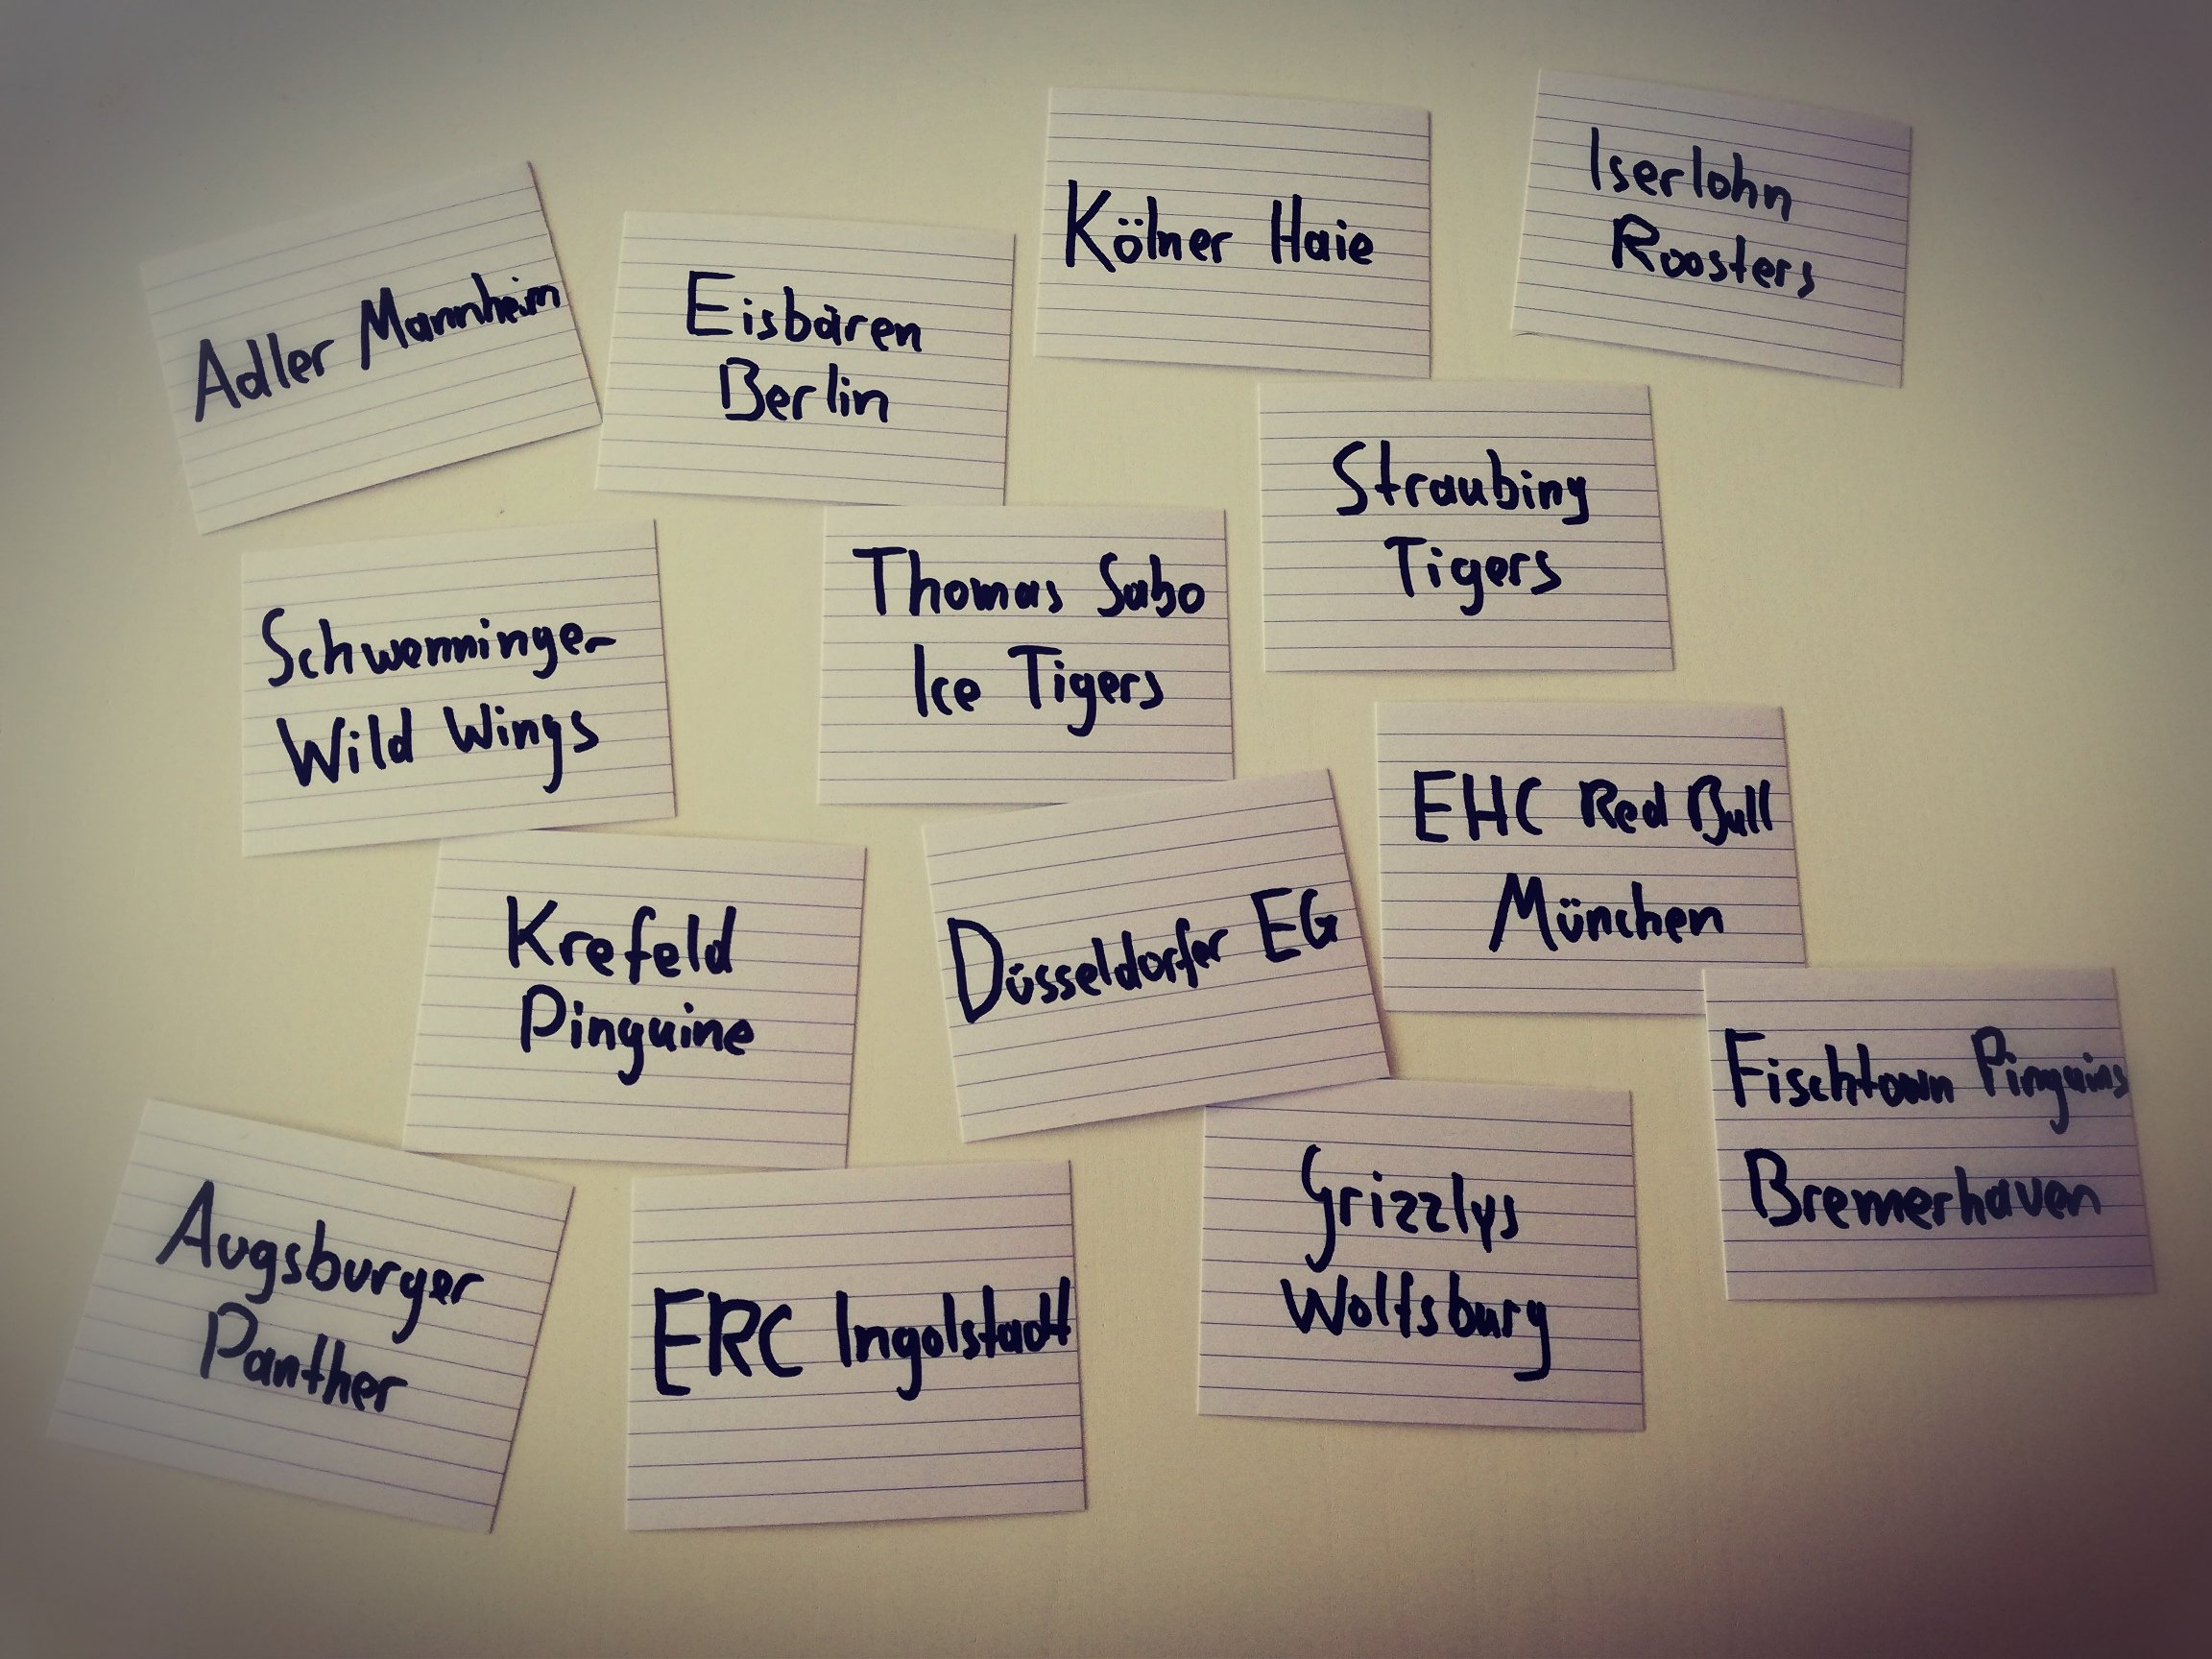 Adler Mannheim
Eisbären
Berlin
Kölner Haie
Iserlohn
Roosters
Schwenninger
Wild Wings
Thomas Sabo
Ice Tigers
Straubing
Tigers
Krefeld
Pinguine
Düsseldorfer EG
EHC Red Bull
München
Fischtown Pinguins
Bremerhaven
Augsburger
Panther
ERC Ingolstadt
Grizzlys
Wolfsburg